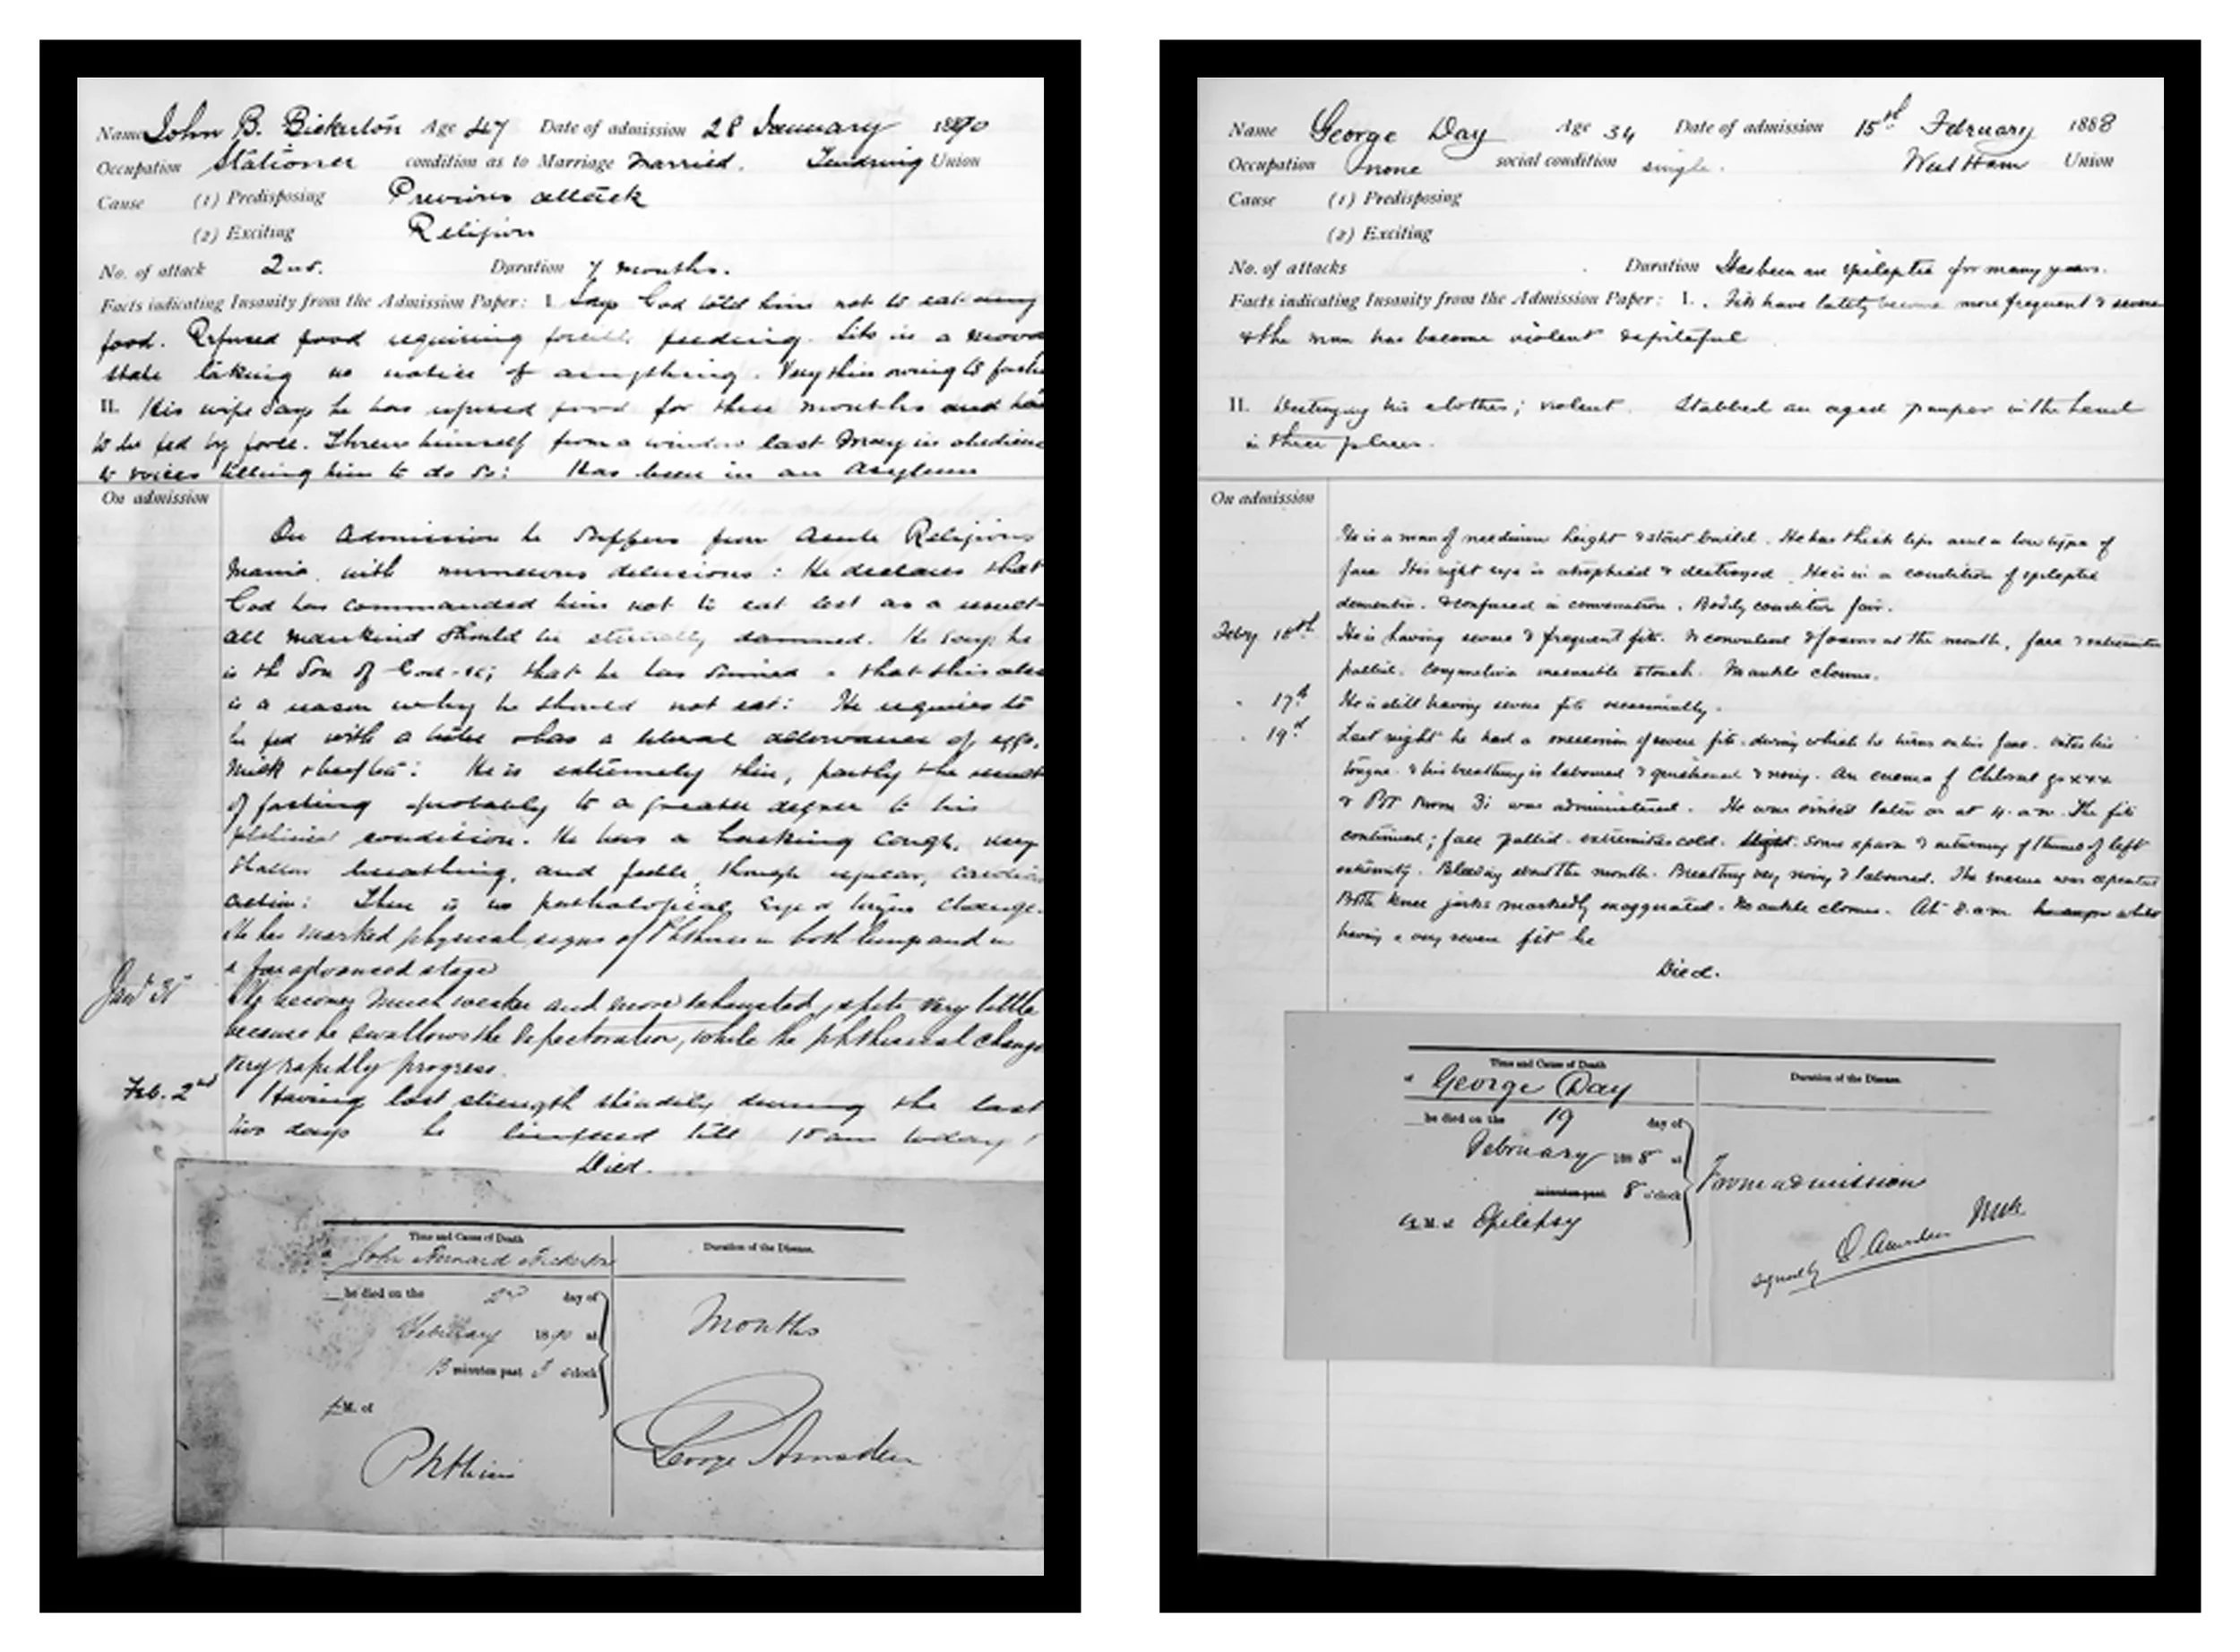 Name John B. Bickerton Age 47 Date of admission 28 January 1890
Occupation Stationer condition as to Marriage Married. Tendring Union
Cause (1) Predisposing Previous attack
(2) Exciting Religion
No. of attack 2nd. Duration 7 months.
Facts indicating Insanity from the Admission Paper: I. Says God told him not to eat any
food. Refused food requiring forcible feeding. Sits in a
state taking no notice of anything. Very thin owing to
II. His wife says he has refused food for three months and has
to be fed by force. Threw himself from a window last May in
to voices telling him to do so: Has been in an asylum
On admission
On Admission he suffers from Acute Religious
Mania with numerous delusions: He declares that
God has commanded him not to eat lest as a result
all mankind should be eternally damned. He says he
is the Son of God &c; that he has sinned & that this also
is a reason why he should not eat: He requires to
be fed with a tube & has a liberal allowance of eggs,
milk & beef tea: He is extremely thin, partly the result
of fasting & probably to a greater degree to his
phthisical condition. He has a hacking cough, very
shallow breathing, and feeble, though regular, cardiac
action: There is no pathological Eye or tongue change.
He has marked physical signs of Phthisis in both lungs and in
a far advanced stage
Jany 31 He becomes much weaker and more exhausted, spits very little
because he swallows the expectoration, while the phthisical change
very rapidly progress.
Feb. 2nd Having lost strength steadily during the last
two days he lingered till today
Died.
Time and Cause of Death Duration of the Disease.
John Bernard Bickerton
he died on the 2nd day of
February 1890 at
minutes past o'clock
M. of
Months
Phthisis
George Amsden
Name George Day Age 34 Date of admission 15th February 1888
Occupation none social condition single. West Ham Union
Cause (1) Predisposing
(2) Exciting
No. of attacks Duration Has been an epileptic for many years.
Facts indicating Insanity from the Admission Paper: I. Fits have lately become more frequent & severe
& the man has become violent & spiteful
II. Destroying his clothes; violent. Stabbed an aged pauper in the head
in three places.
On admission
He is a man of medium height & stout build. He has thick lips and a low type of
face His right eye is atrophied & destroyed He is in a condition of epileptic
dementia. & confused in conversation. Bodily condition fair.
Feby 16th He is having severe & frequent fits. Is convulsed & foams at the mouth, face & extremities
pallid. Conjunctiva insensible to touch. No ankle clonus.
" 17th He is still having severe fits occasionally.
" 19th Last night he had a succession of severe fits during which he turns on his face. bites his
tongue. & his breathing is laboured & & noisy. An enema of Chloral gr xxx
& Pot Brom ʒi was administered. He was visited later on at 4. a.m. The fits
continued; face pallid. extremities cold. some spasm & of thumb of left
extremity. Bleeding about the mouth. Breathing very noisy & laboured. The enema was repeated
Both knee jerks markedly exaggerated. No ankle clonus. At 8. a.m. whilst
having a very severe fit he
Died.
Time and Cause of Death Duration of the Disease.
of George Day
he died on the 19 day of
February 1888 at
minutes past 8 o'clock
A.M. of Epilepsy
From admission
signed by G Amsden